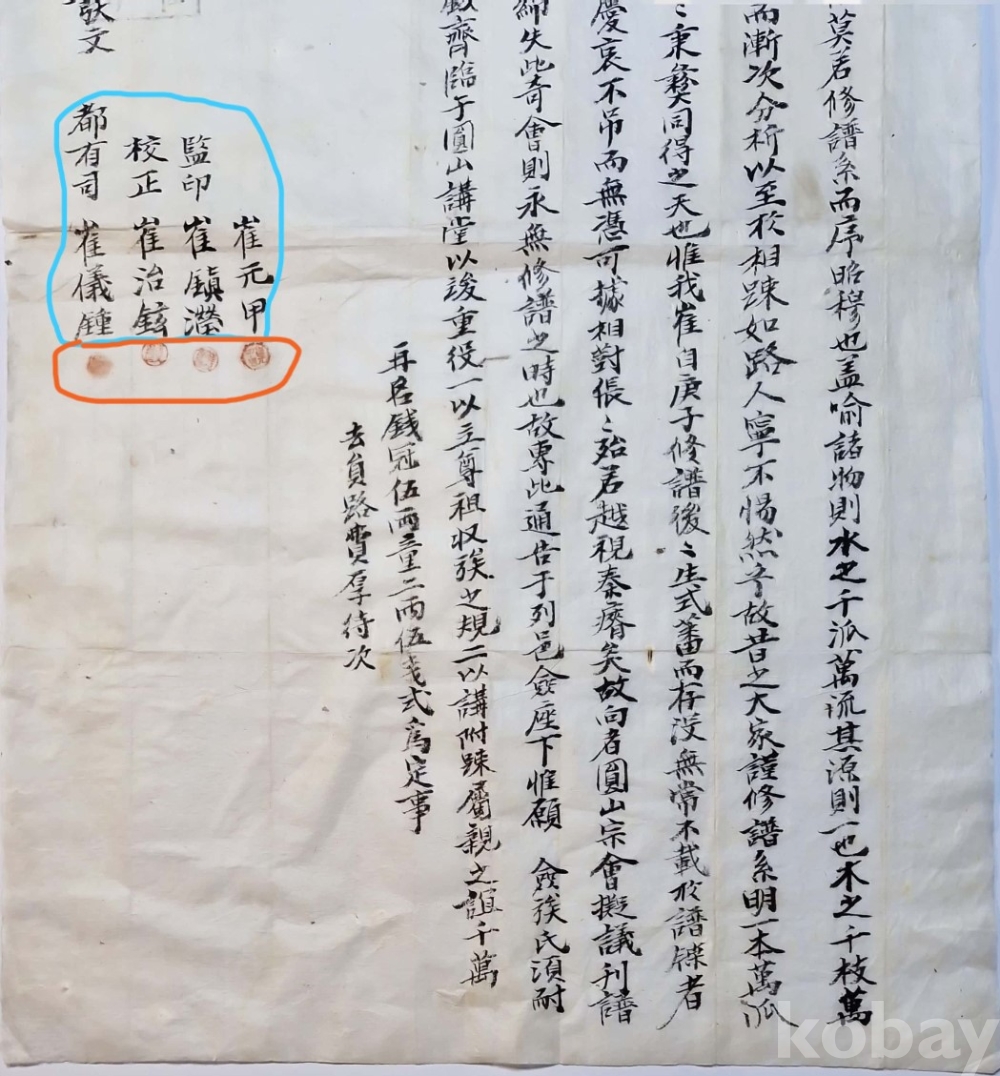 莫若修譜系而序昭穆也盖喻諸物則水之千派萬流其源則一也木之千枝萬
而漸次分析以至於相踈如路人寧不惕然乎故昔之大家謹修譜系明一本萬派
秉彜同得之天也惟我崔自庚子修譜後〻生式蕃而存沒無常不載於譜牒者
慶哀不吊而無憑可據相對倀〻殆若越視秦瘠矣故向者圓山宗會擬議刊譜
失此奇會則永無修譜之時也故專此通告于列邑僉座下惟願 僉族氏須耐
齊臨于圓山講堂以竣重役一以主尊祖収族之規二以講附踈屬親之誼千萬
再名錢冠伍両童二両伍戔式爲定事
去員路費厚待次
崔元甲
監印 崔鎭瀅
校正 崔治鉉
都有司 崔儀鍾
文
kobay